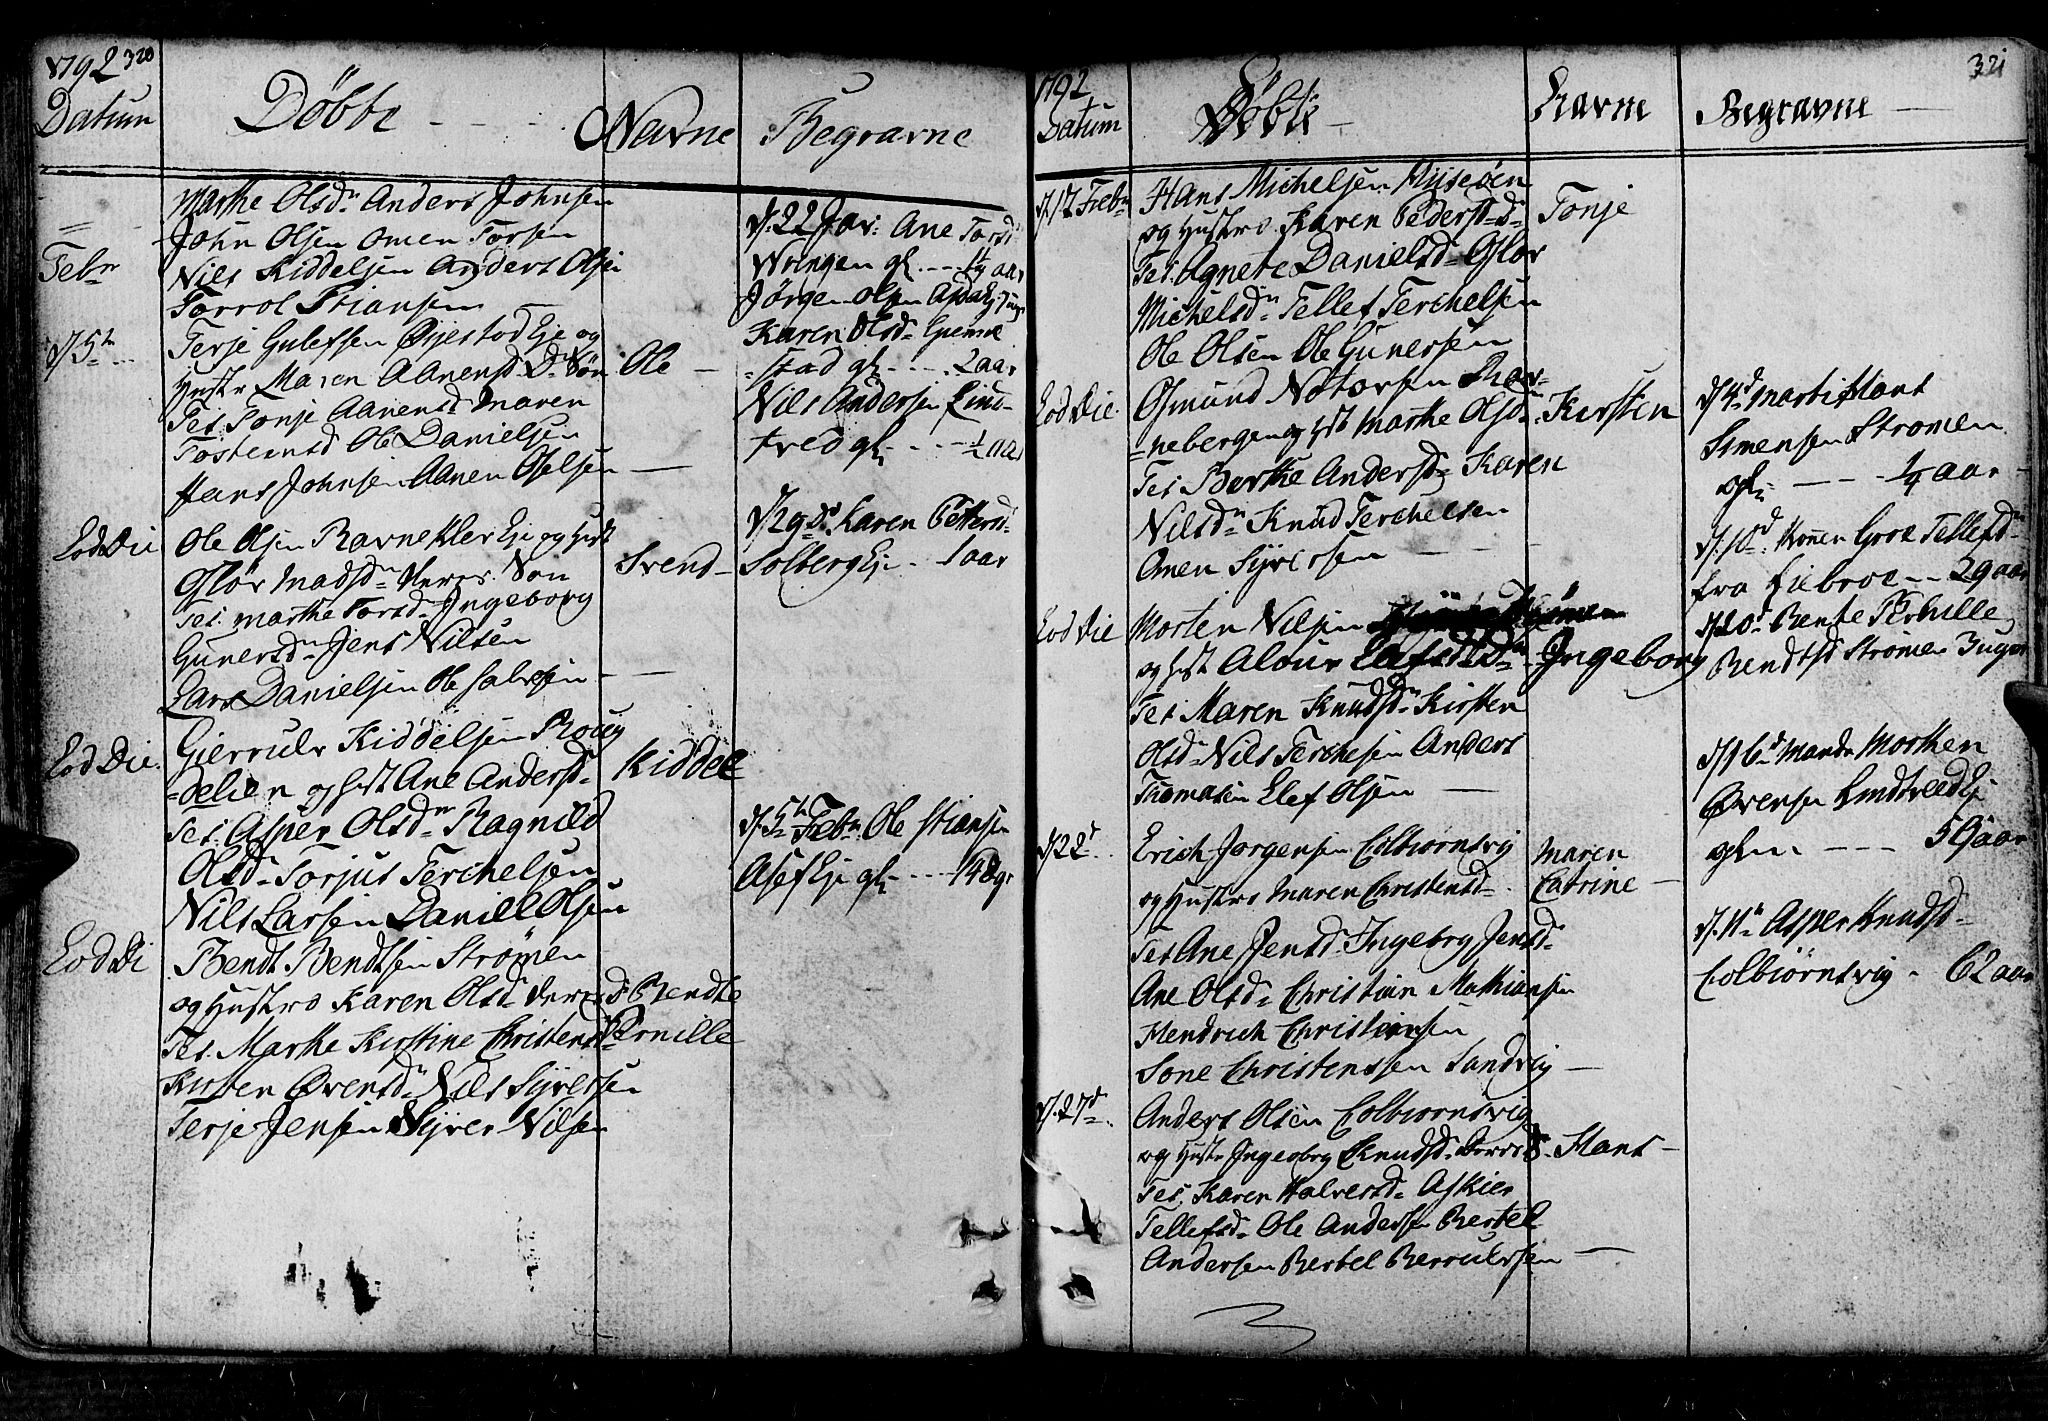 1792 320
Datum
Döbte
Navne
Begravne
Febr
Marthe Olsdr Anders Johnsen
John Olsen Omen Torsen
Nils Kiddelsen Anders Olsen
Torrol Stiansen
d. 5te
Terje Gulefsen Øyestad Eje og
Hustr Maren Aanensd Ds Sön
Tes. Tonje Aanensd Maren
Tosteinsd Ole Danielsen
Hans Johnsen Aanen Oselsen
Ole
Eod Die
Ole Olsen Ravnekler Eje og Hust
Gislör Madsdr Deres Son
Tes. Marthe Torsd Ingeborg
Gunersdr Jens Nilsen
Lars Danielsen Ole Salvesen
Svend
Eod Die
Gierrulv Kiddelsen Roug
=delien og Hust Ane Andersd
Tes. Asper Olsdr Ragnild
Olsd Torjus Terchelsen
Nils Larsen Daniel Olsen
Kiddel
Eod Di
Bendt Bendtsen Strømen
og Hustro Karen Olsd deres D
Tes. Marthe Kirstine Christensd
Kirsten Øvensd Nils Syversen
Terje Jensen Syver Nilsen
Bendte
Pernille
d. 22 Jar: Ane Torsd
Wringen gl. 1½ aar
Jørgen Olsen
Karen Olsd Gjemme
=stad gl. 2 aar
Nils Andersen Lind=
tved gl. ½ aar
d. 29de Karen Pettersd
Solberg Eje 1 aar
d. 5te Febr. Ole Stiansen
Asef Eje gl. 14 dgr
1792
Datum
Döbte
Navne
Begravne
321
d. 12 Febr
Hans Michelsen Mjiseöen
og Hustro Karen Pedersd D
Tes. Agnete Danielsd Gislör
Michelsd Tellef Terchelsen
Ole Olsen Ole Gunersen
Tonje
Eod Die
Osmund Notorsen Rav=
=nebergen og Hst Marthe Olsd
Tes. Berthe Andersd Karen
Nilsdr Knud Terchelsen
Omen Syversen
Kirsten
Eod Die
Morten Nilsen
og Hust Alour Elefsd Dr
Tes. Maren Knudsdr Kirsten
Olsd Nils Terchesen Anders
Thomasen Elef Olsen
Ingeborg
d. 22d
Erich Jorgensen Colbiörnsvig
og Hustro Maren Christensd
Tes Ane Jensd Ingeborg Jensd
Ane Olsd Christian Mathiasen
Hendrich Christiansen
Sone Christenssen Sandvig
Maren
Catrine
d. 27d
Anders Olsen Colbiornsvig
og Hustr Ingeborg Knudsd Deres S.
Tes. Karen Halversd Askier
Tellefsd Ole Andersen Bertel
Andersen Bertel Berrulvsen
Hans
d. 4d Marti Hans
Simensen Strömen
gl. ¼ aar
d. 10d Konen Groe Tellefsdr
fra Liebroe 29 aar
d. 20d Bente Pernille
Bendtsd Strömen 3 uger
d. 16d Manden Morthen
Øvensen Lindtved Eje
glm 59 aar
d. 11te Asper Knudsd
Colbiörnsvig 62 aar